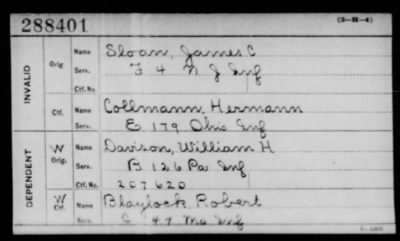 288401
(3-88-4)
INVALID
Orig.
Name Sloan, James C
Serv. F 4 N J Inf
Ctf. No.
Ctf.
Name Collmann, Hermann
Serv. E 179 Ohio Inf
DEPENDENT
W
Orig.
Name Davison, William H
Serv. B 126 Pa Inf
Ctf. No. 207620
W
Ctf.
Name Blaylock, Robert
Serv. C 47 Mo Inf